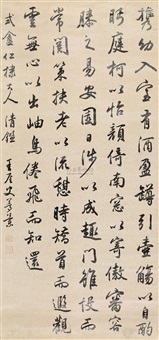 攜幼入室有酒盈罇引壺觴以自酌
眄庭柯以怡顏倚南窓以寄傲審容
膝之易安園日涉以成趣門雖設而
常關策扶老以流憩時矯首而遐觀
雲無心以出岫鳥倦飛而知還
式盦仁棣大人清鑑